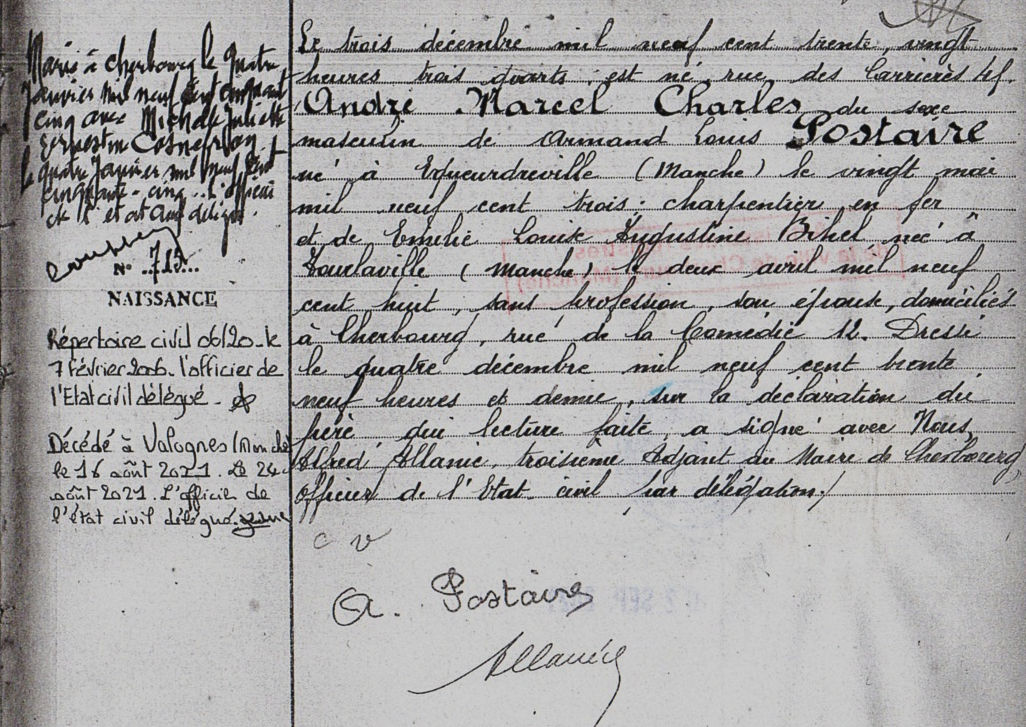 Marié à Cherbourg le quatre
Janvier mil neuf cent cinquante
cinq avec Michèle Juliette
Ernestine Cosnefroy.
le quatre Janvier mil neuf cent
cinquante-cinq. L'officier
de l'état civil délégué.
N° 715
NAISSANCE
Répertoire civil 06/20 le
7 février 2006. l'officier de
l'Etat civil délégué.
Décédé à Valognes (Manche)
le 16 août 2021. Le 24
août 2021. L'officier de
l'état civil délégué.
Le trois décembre mil neuf cent trente, vingt
heures trois quarts, est né, rue des Carrières 45.
André Marcel Charles, du sexe
masculin de Armand Louis Postaire
né à Equeurdreville (Manche) le vingt mai
mil neuf cent trois; charpentier en fer
et de Emélie Louise Augustine Bihel née à
Tourlaville (Manche) le deux avril mil neuf
cent huit, sans profession, son épouse, domiciliés
à Cherbourg, rue de la Comédie 12. Dressé
le quatre décembre mil neuf cent trente
neuf heures et demie, sur la déclaration du
père, qui lecture faite, a signé avec Nous,
Alfred Allanic, troisième Adjoint au Maire de Cherbourg,
Officier de l'Etat civil par délégation./
C V
A. Postaire
Allanic